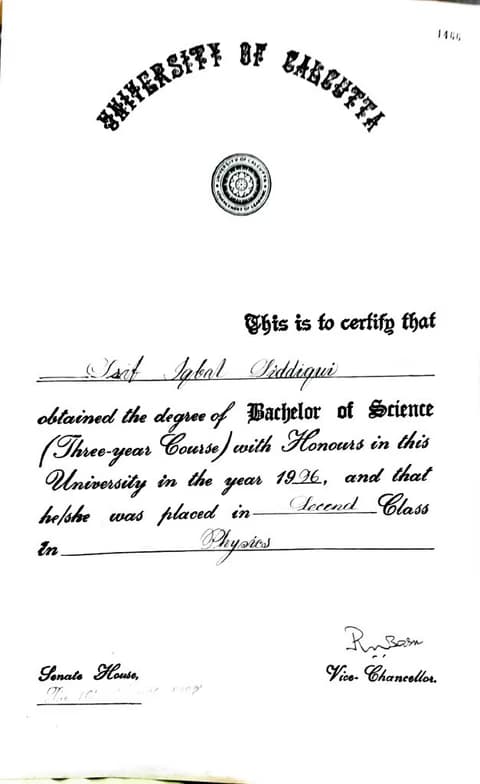 1466
UNIVERSITY OF CALCUTTA
UNIVERSITY OF CALCUTTA
ADVANCEMENT OF LEARNING
This is to certify that
Asif Iqbal Siddiqui
obtained the degree of Bachelor of Science
(Three-year Course) with Honours in this
University in the year 1996, and that
he/she was placed in Second Class
In Physics
Senate House,
Vice-Chancellor.